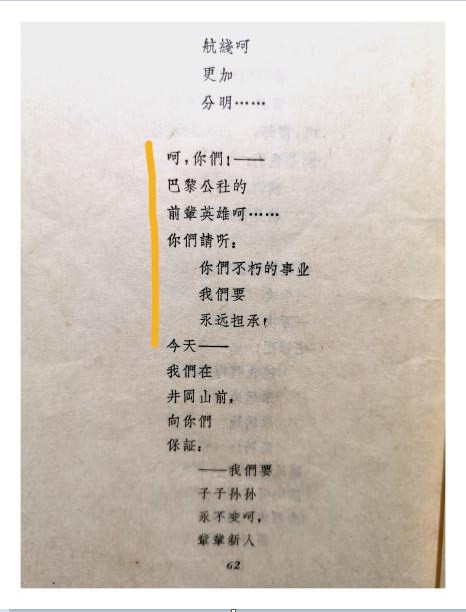 航綫呵
更加
分明……
呵,你們!——
巴黎公社的
前輩英雄呵……
你們請听:
你們不朽的事业
我們要
永远担承!
今天——
我們在
井岡山前,
向你們
保証:
——我們要
子子孙孙
永不变呵,
輩輩新人
62